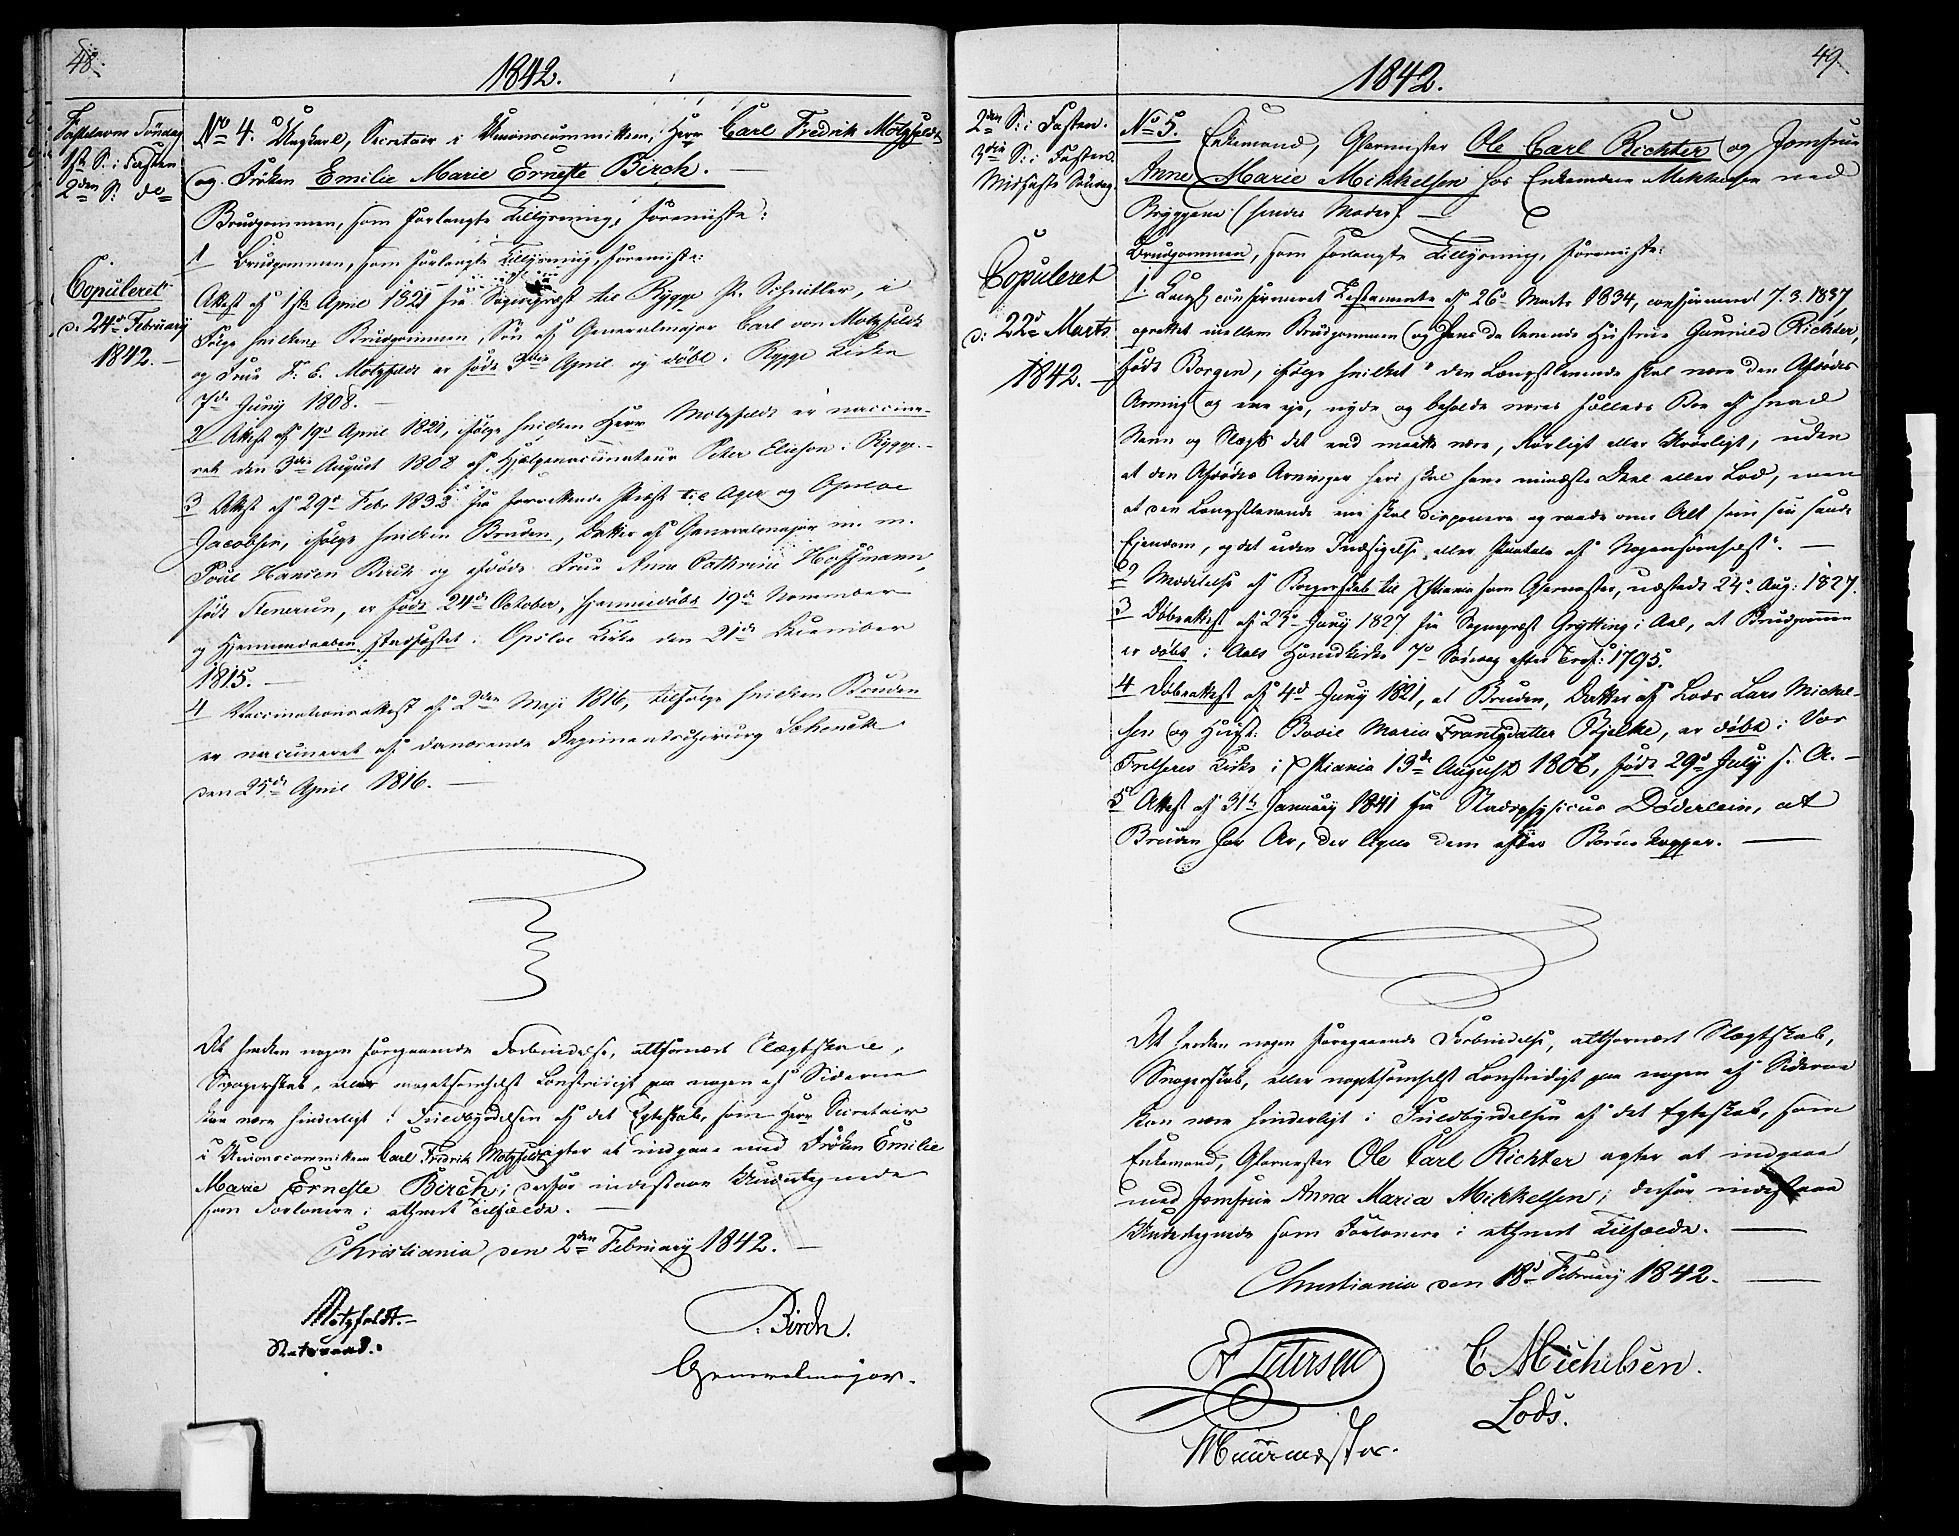 48.
1842.
Fastelavns Söndag
1ste S: i Fasten
2den S: do
Copuleret
d. 24de February
1842.
No 4. Ungkarl, Secretair i Unionscommitteen, Herr Carl Fredrik Motzfeldt
og Frøken Emilie Marie Erneste Birch.
Brudgommen, som forlangte Tillysning, foreviste:
1 Brudgommen, som forlangte Tillysning, foreviste:
Attest af 1ste April 1821 fra Sognepræst til Rygge P. Schnitler, i
Følge hvilken Brudgommen, Søn af Generalmajor Carl von Motzfeldt
og Frue F. E. Motzfeldt er født 3die April og døbt i Rygge Kirke
7de Juny 1808.
2 Attest af 19de April 1821, ifølge hvilken Herr Motzfeldt er vaccine-
ret den 3die August 1808 af Hjelpevaccinateur Peter Elieson i Rygge.
3 Attest af 29de Febr 1832 fra Præst til Ager og Opsloe
Jacobsen, ifølge hvilken Bruden, Datter af Generalmajor m. m.
Poul Hansen Birch og afdøde Frue Anne Cathrine Hoffmann,
født Stenerun, er født 24de October, hjemmedøbt 19de November
og Hjemmedaaben stadfæstet i Opsloe Kirke den 21de December
1815.
4 Vaccinationsattest af 2den Maji 1816, tilfølge hvilken Bruden
er vaccineret af daværende Regimentschirurg Schenck
den 25de April 1816.
At hverken nogen foregaaende Forbindelse, altfornært Slægtskab,
Svogerskab, eller nogetsomhelst Lovstridigt paa nogen af Siderne
kan være hinderligt i Fuldbyrdelsen af det Egteskab, som Herr Secretair
i Unionscommitteen Carl Fredrik Motzfeldt agter at indgaae med Frøken Emilie
Marie Erneste Birch; derfor indestaae Undertegnede
som Forlovere i ethvert Tilfælde.
Christiania den 2den February 1842.
Motzfeldt.
Statsraad.
Birch.
Generalmajor.
49.
1842.
2den S: i Fasten.
3die S: i Fasten.
Midfaste Søndag.
Copuleret
d: 22de Marts
1842.
No 5. Enkemand, Glarmester Ole Carl Richter og Jomfrue
Anne Marie Mikkelsen hos Enkemadam Mikkelsen ved
Bryggene (hendes Moder).
Brudgommen, som forlangte Tillysning, foreviste:
1. Kongl. confirmeret Testamente af 26de Marts 1834, confirmeret 7.3.1837,
oprettet mellem Brudgommen og Hans da levende Hustrue Gunnild Richter,
født Borgen, ifølge hvilket "den Længstlevende skal være den Afdødes
Arving og ene eje, nyde og beholde vores fælleds Boe af hvad
Navn og Slags det end maatte være, Rørligt eller Urørligt, uden
at den Afdødes Arvinger heri skal have mindste Deel eller Lod, men
at den Længstlevende ene skal disponere og raade over Alt som sin sande
Ejendom, og det uden Indsigelse eller Paatale af Nogensomhelst".
2 Meddelelse af Borgerskab til Xstiania som Glarmester, udstedt 24de Aug: 1827.
3 Døbeattest af 23de Juny 1827 fra Sognepræst Grytting i Aal, at Brudgommen
er døbt i Aals Hovedkirke 7de Søndag efter Tref: 1795.
4 Døbeattest af 4de Juny 1821, at Bruden, Datter af Lods Lars Mickel-
sen og Hust: Boole Maria Frantzdatter Bjelke, er døbt i Vor
Frelseres Kirke i Xstiania 13de August 1806, født 29de July s. A.
5 Attest af 31te January 1841 fra Stadsphysicus Döderlein, at
Bruden har Ar, der ligne dem efter Børnekopper.
At hverken nogen foregaaende Forbindelse, altfornært Slægtskab,
Svogerskab, eller nogetsomhelst Lovstridigt paa nogen af Siderne
kan være hinderligt i Fuldbyrdelsen af det Egteskab, som
Enkemand, Glarmester Ole Carl Richter agter at indgaae
med Jomfrue Anna Maria Mikkelsen; derfor indestaae
Undertegnede som Forlovere i ethvert Tilfælde.
Christiania den 18de February 1842.
Petersen
Muurmester.
C Michelsen.
Lods.